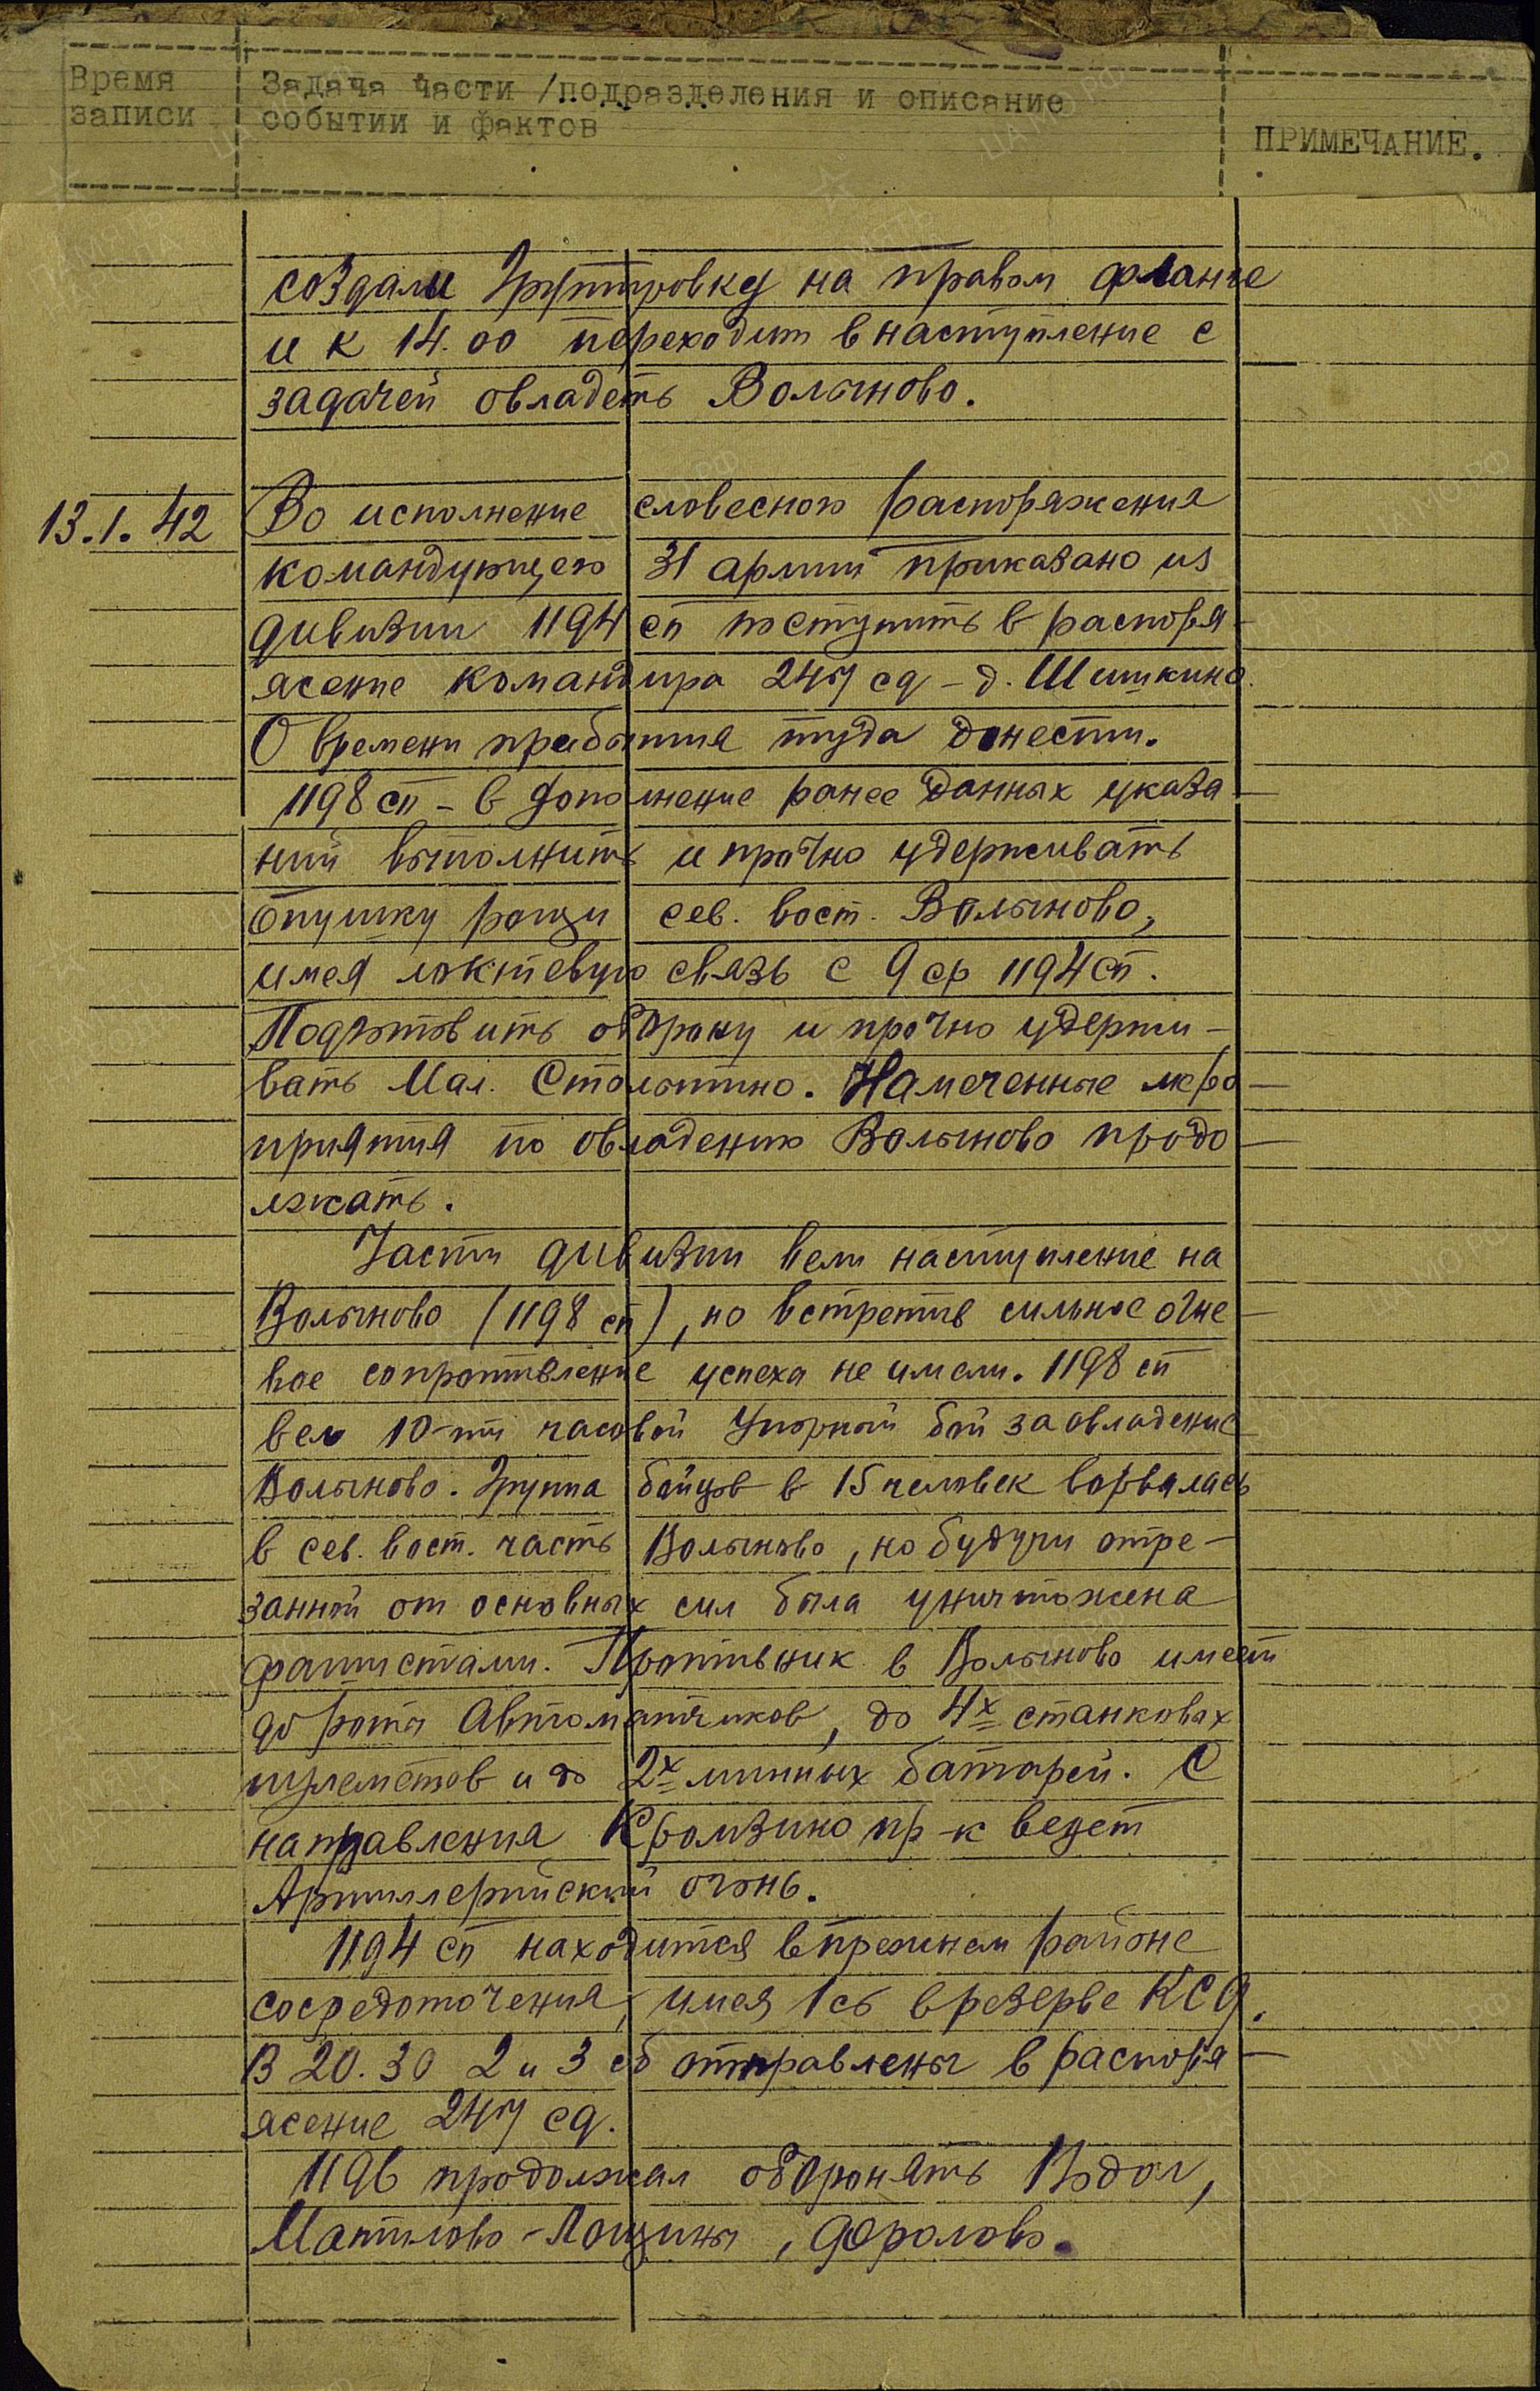 Время записи
Задача части /подразделения и описание событии и фактов
ПРИМЕЧАНИЕ.
создали Группировку на правом фланге
и к 14.00 переходит в наступление с
задачей овладеть Волыново.
13.1.42
Во исполнение словесного распоряжения
командующего 31 армии приказано из
дивизии 1194 сп поступить в распоря-
жение командира 247 сд – д. Шишкино.
О времени прибытия туда донести.
1198 сп – в дополнение ранее данных указа-
ний выполнить и прочно удерживать
опушку рощи сев. вост. Волыново,
имея локтевую связь с 9 ср 1194 сп.
Подготовить оборону и прочно удержи-
вать Мал. Столыпино. Намеченные меро-
приятия по овладению Волыново продо-
лжать.
Части дивизии вели наступление на
Волыново (1198 сп), но встретив сильное огне-
вое сопротивление успеха не имели. 1198 сп
вел 10-ти часовой упорный бой за овладение
Волыново. Группа бойцов в 15 человек ворвалась
в сев. вост. часть Волыново, но будучи отре-
занной от основных сил была уничтожена
фашистами. Противник в Волыново имеет
до роты Автоматчиков, до 4х станковых
пулеметов и до 2х минных батарей. С
направления Кромзино пр-к ведет
Артиллерийский огонь.
1194 сп находится в прежнем районе
сосредоточения, имея 1 сб в резерве КСД.
В 20.30 2 и 3 сб отправлены в распоря-
жение 247 сд.
1196 продолжал оборонять Подол,
Матюково-Лощины, Фролово.